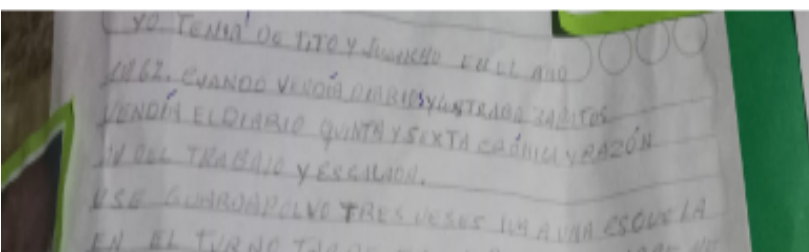 YO TENIA DE TITO Y JUANCHO EN EL AÑO
1962. CUANDO VENDÍA DIARIOS Y LUSTRABA ZAPATOS
VENDÍA EL DIARIO QUINTA Y SEXTA CRÓNICA Y RAZÓN
DEL TRABAJO Y
USE GUARDAPOLVO TRES VESES IVA A UNA ESCUELA
EN EL TURNO TARDE